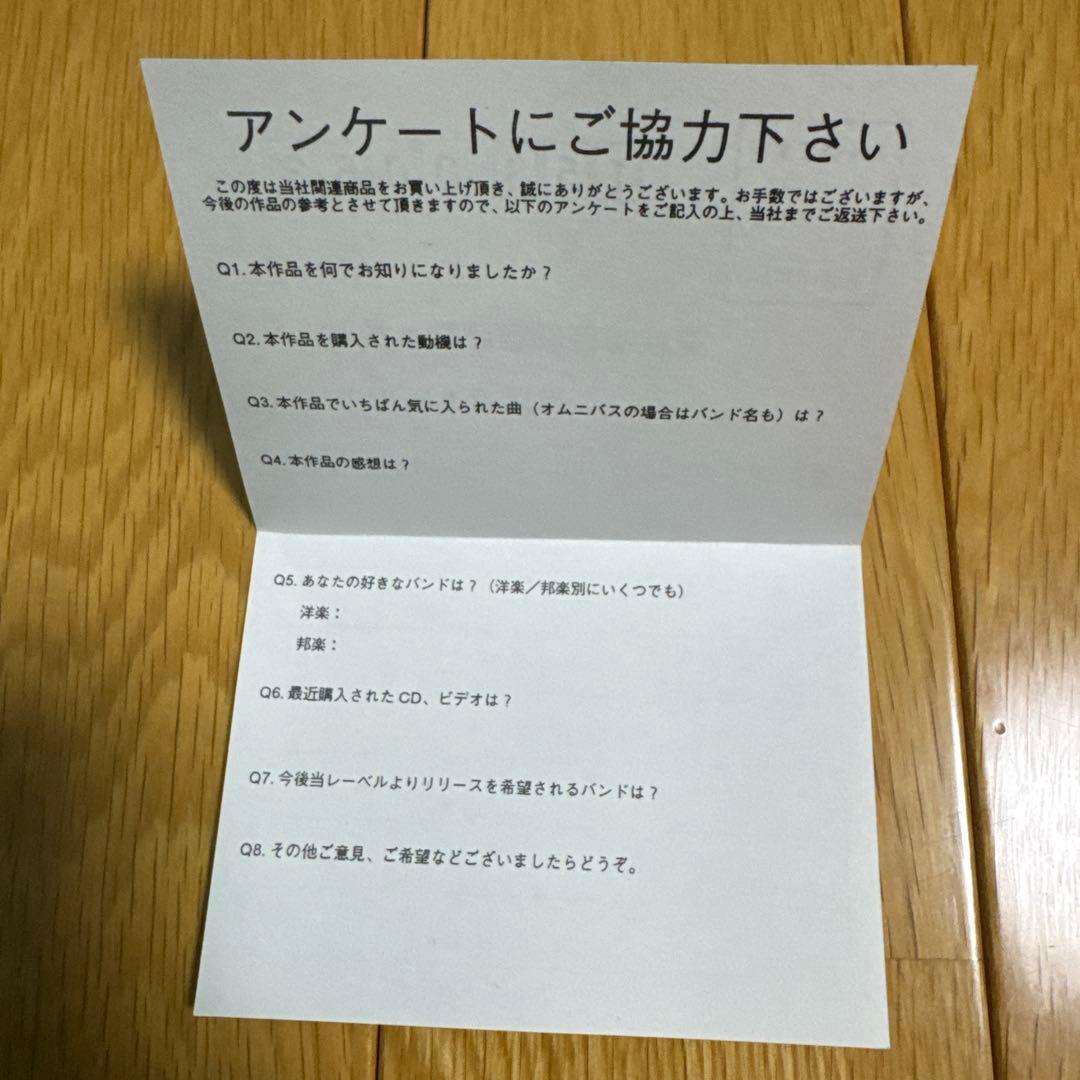 アンケートにご協力下さい
この度は当社関連商品をお買い上げ頂き、誠にありがとうございます。お手数ではございますが、
今後の作品の参考とさせて頂きますので、以下のアンケートをご記入の上、当社までご返送下さい。
Q1.本作品を何でお知りになりましたか？
Q2.本作品を購入された動機は？
Q3.本作品でいちばん気に入られた曲（オムニバスの場合はバンド名も）は？
Q4.本作品の感想は？
Q5.あなたの好きなバンドは？（洋楽／邦楽別にいくつでも）
洋楽：
邦楽：
Q6.最近購入されたCD、ビデオは？
Q7.今後当レーベルよりリリースを希望されるバンドは？
Q8.その他ご意見、ご希望などございましたらどうぞ。